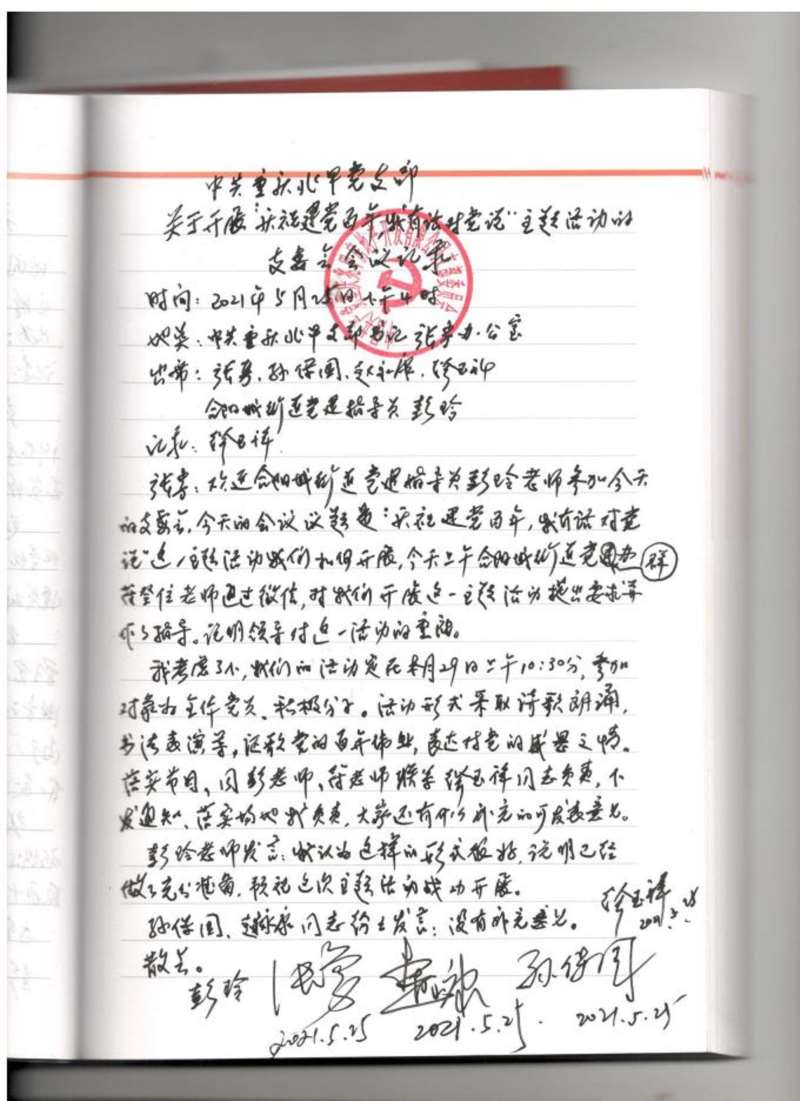 中共重庆北早党支部
关于开展"庆祝建党百年,我有话对党说"主题活动的
支委会会议记录
时间:2021年5月25日下午4时
地点:中共重庆北早支部书记张勇办公室
出席:张勇、孙保国、赵永康、徐玉祥
合阳城街道党建指导员彭玲
记录:徐玉祥
张勇:欢迎合阳城街道党建指导员彭玲老师参加今天
的支委会,今天的会议议题是:"庆祝建党百年,我有话对党
说"这一主题活动我们如何开展,今天上午合阳城街道党群办
老师通过微信,对我们开展这一主题活动提出要求并
作了指导。说明领导对这一活动的重视。
我考虑了下,我们的活动定在本月29日上午10:30分,参加
对象为全体党员、积极分子。活动形式采取诗歌朗诵,
书法表演等,讴歌党的百年伟业,表达对党的感恩之情。
落实节目、同彭老师、符老师联系徐玉祥同志负责,下
发通知、落实场地我负责,大家还有什么补充的可发表意见。
彭玲老师发言:我认为这样的形式很好,说明已经
做了充分准备,预祝这次主题活动成功开展。
孙保国、赵永康同志分别发言:没有补充意见。
徐玉祥
2021.5.25
散会。
彭玲 张勇 赵永康 孙保国
2021.5.25 2021.5.25. 2021.5.25